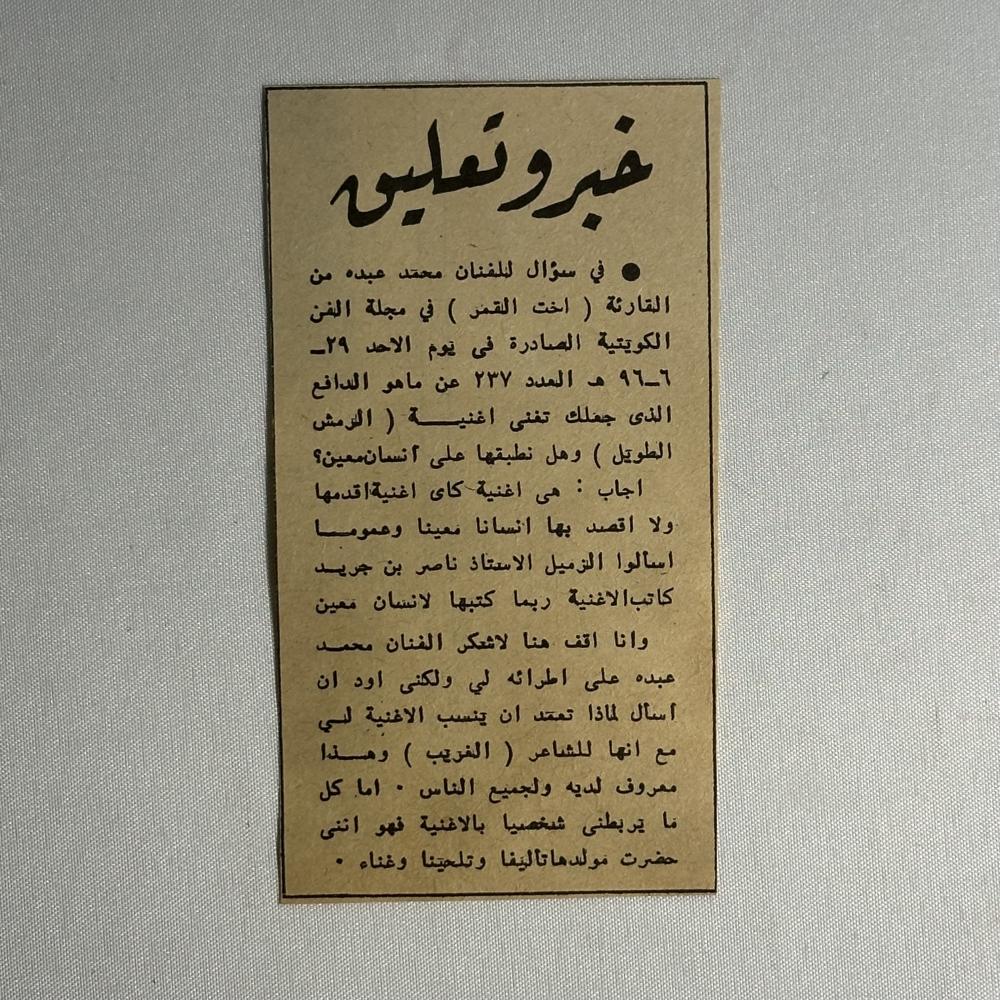 خبر وتعليق
● في سؤال للفنان محمد عبده من
القارئة ( اخت القمر ) في مجلة الفن
الكويتية الصادرة فى يوم الاحد ٢٩ــ
٦ــ٩٦ هـ العدد ٢٣٧ عن ماهو الدافع
الذى جعلك تغنى اغنيـــــة ( الرمش
الطويل ) وهل نطبقها على انسان معين؟
اجاب : هى اغنية كاى اغنية اقدمها
ولا اقصد بها انسانا معينا وعمومـــا
اسألوا الزميل الاستاذ ناصر بن جريـد
كاتب الاغنية ربما كتبها لانسان معين
وانا اقف هنا لاشكر الفنان محمـد
عبده على اطرائه لي ولكنى اود ان
اسأل لماذا تعمد ان ينسب الاغنية لـي
مع انها للشاعر ( الغريب ) وهـــذا
معروف لديه ولجميع الناس ٠ اما كل
ما يربطنى شخصيا بالاغنية فهو اننى
حضرت مولدها تأليفا وتلحينا وغناء ٠